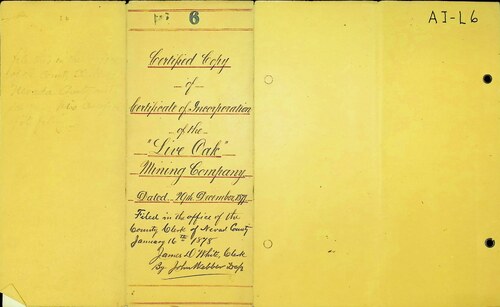 No 6
AI-L6
Certified Copy
of
Certificate of Incorporation
of the
"Live Oak"
Mining Company
Dated 29th December 1877
Filed in the office of the
County Clerk of Nevad County
January 16th 1878
James D White, Clerk
By John Webber Dep